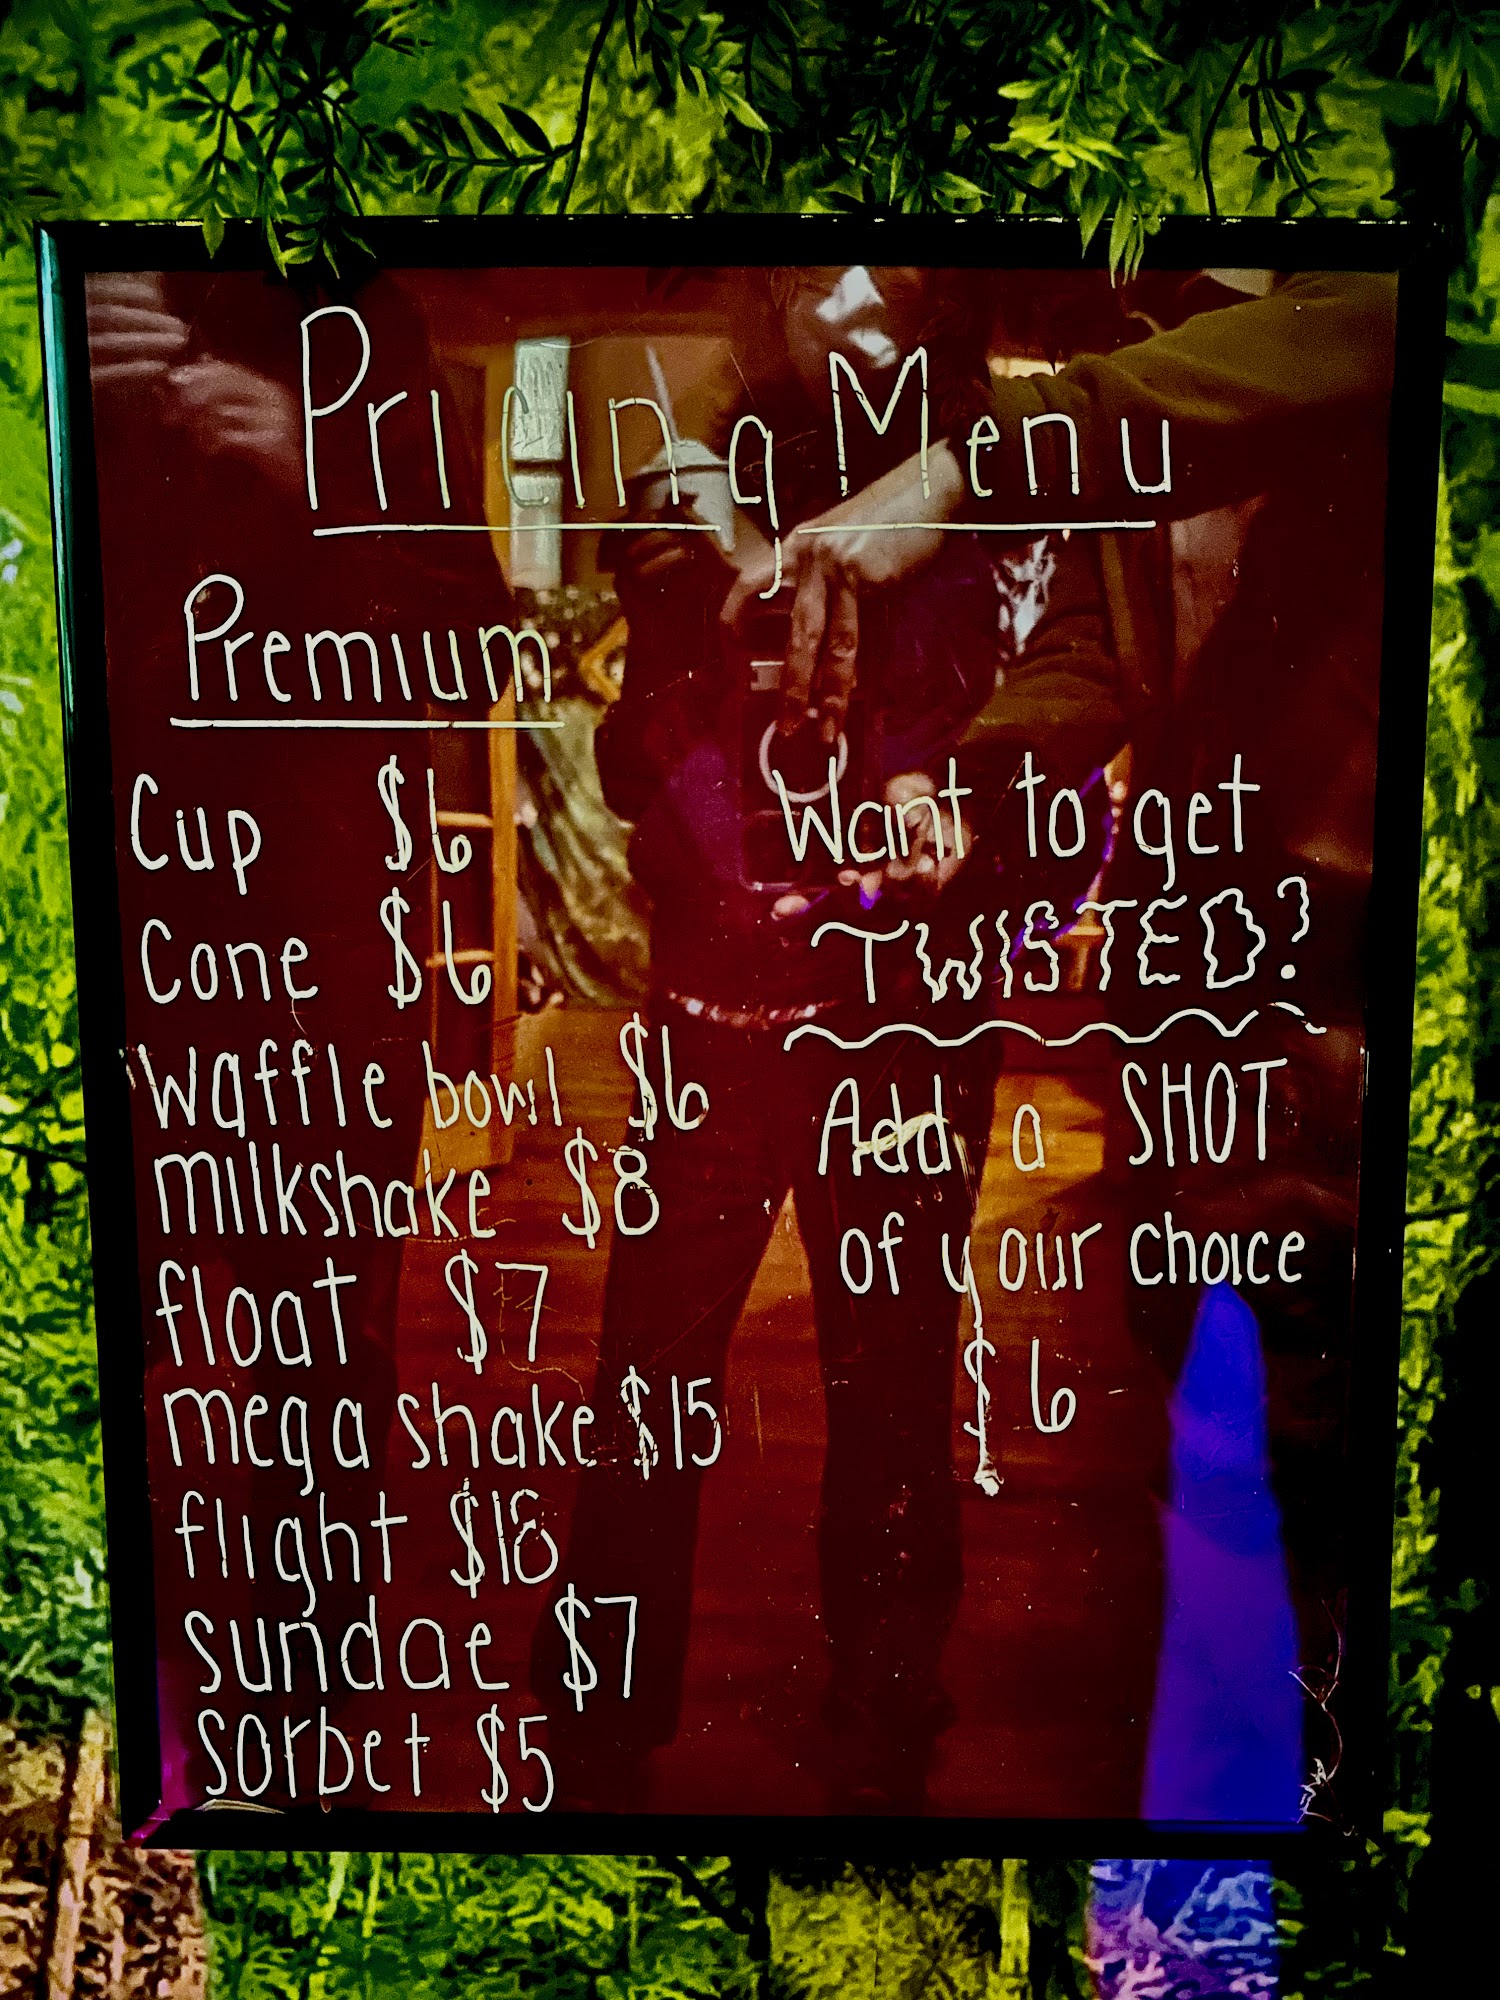 Pricing Menu
Premium
Cup $6
Cone $6
Waffle bowl $6
milkshake $8
float $7
mega shake $15
flight $18
sundae $7
sorbet $5
Want to get
TWISTED?
Add a SHOT
of your choice
$6